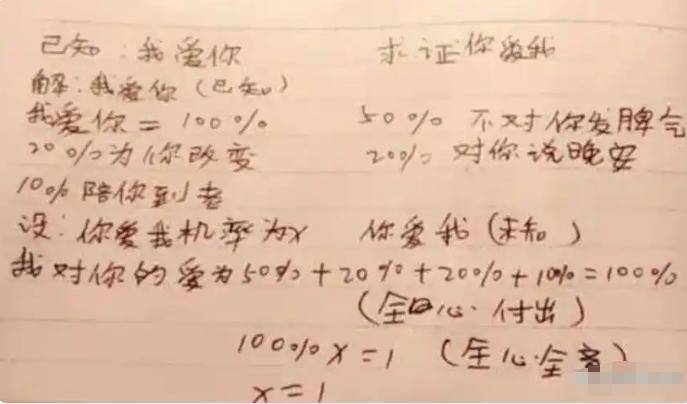 已知：我爱你 求证你爱我
解：我爱你（已知）
我爱你 = 100% 50% 不对你发脾气
20%为你改变 20% 对你说晚安
10%陪你到老
设：你爱我机率为x 你爱我（未知）
我对你的爱为50%+20%+20%+10%=100%
（全心·付出）
100%x=1（全心全意）
x=1